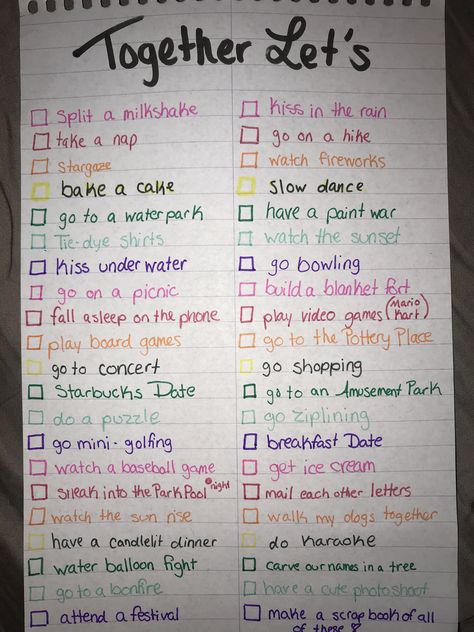 Together Let's
Split a milkshake
take a nap
Stargaze
bake a cake
go to a waterpark
Tie-dye shirts
kiss under water
go on a picnic
fall asleep on the phone
play board games
go to concert
Starbucks Date
do a puzzle
go mini-golfing
watch a baseball game
sneak into the Park Pool @night
watch the sun rise
have a candlelit dinner
water balloon fight
go to a bonfire
attend a festival
kiss in the rain
go on a hike
watch fireworks
slow dance
have a paint war
watch the sunset
go bowling
build a blanket fort
play video games (Mario
kart)
go to the Pottery Place
go shopping
go to an Amusement Park
go ziplining
breakfast Date
get ice cream
mail each other letters
walk my dogs together
do karaoke
carve our names in a tree
have a cute photoshoot
make a scrapbook of all
of these